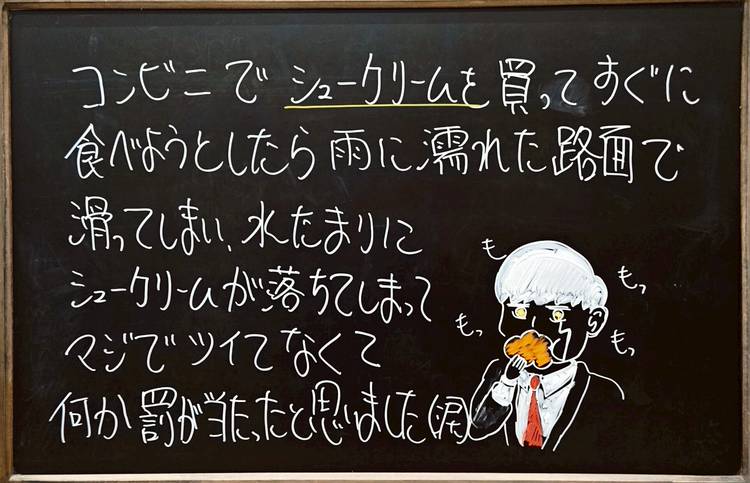 コンビニでシュークリームを買ってすぐに
食べようとしたら雨に濡れた路面で
滑ってしまい、水たまりに
シュークリームが落ちてしまって
マジでツイてなくて
何か罰が当たったと思いました(涙)
も
もっ
もっ
もっ